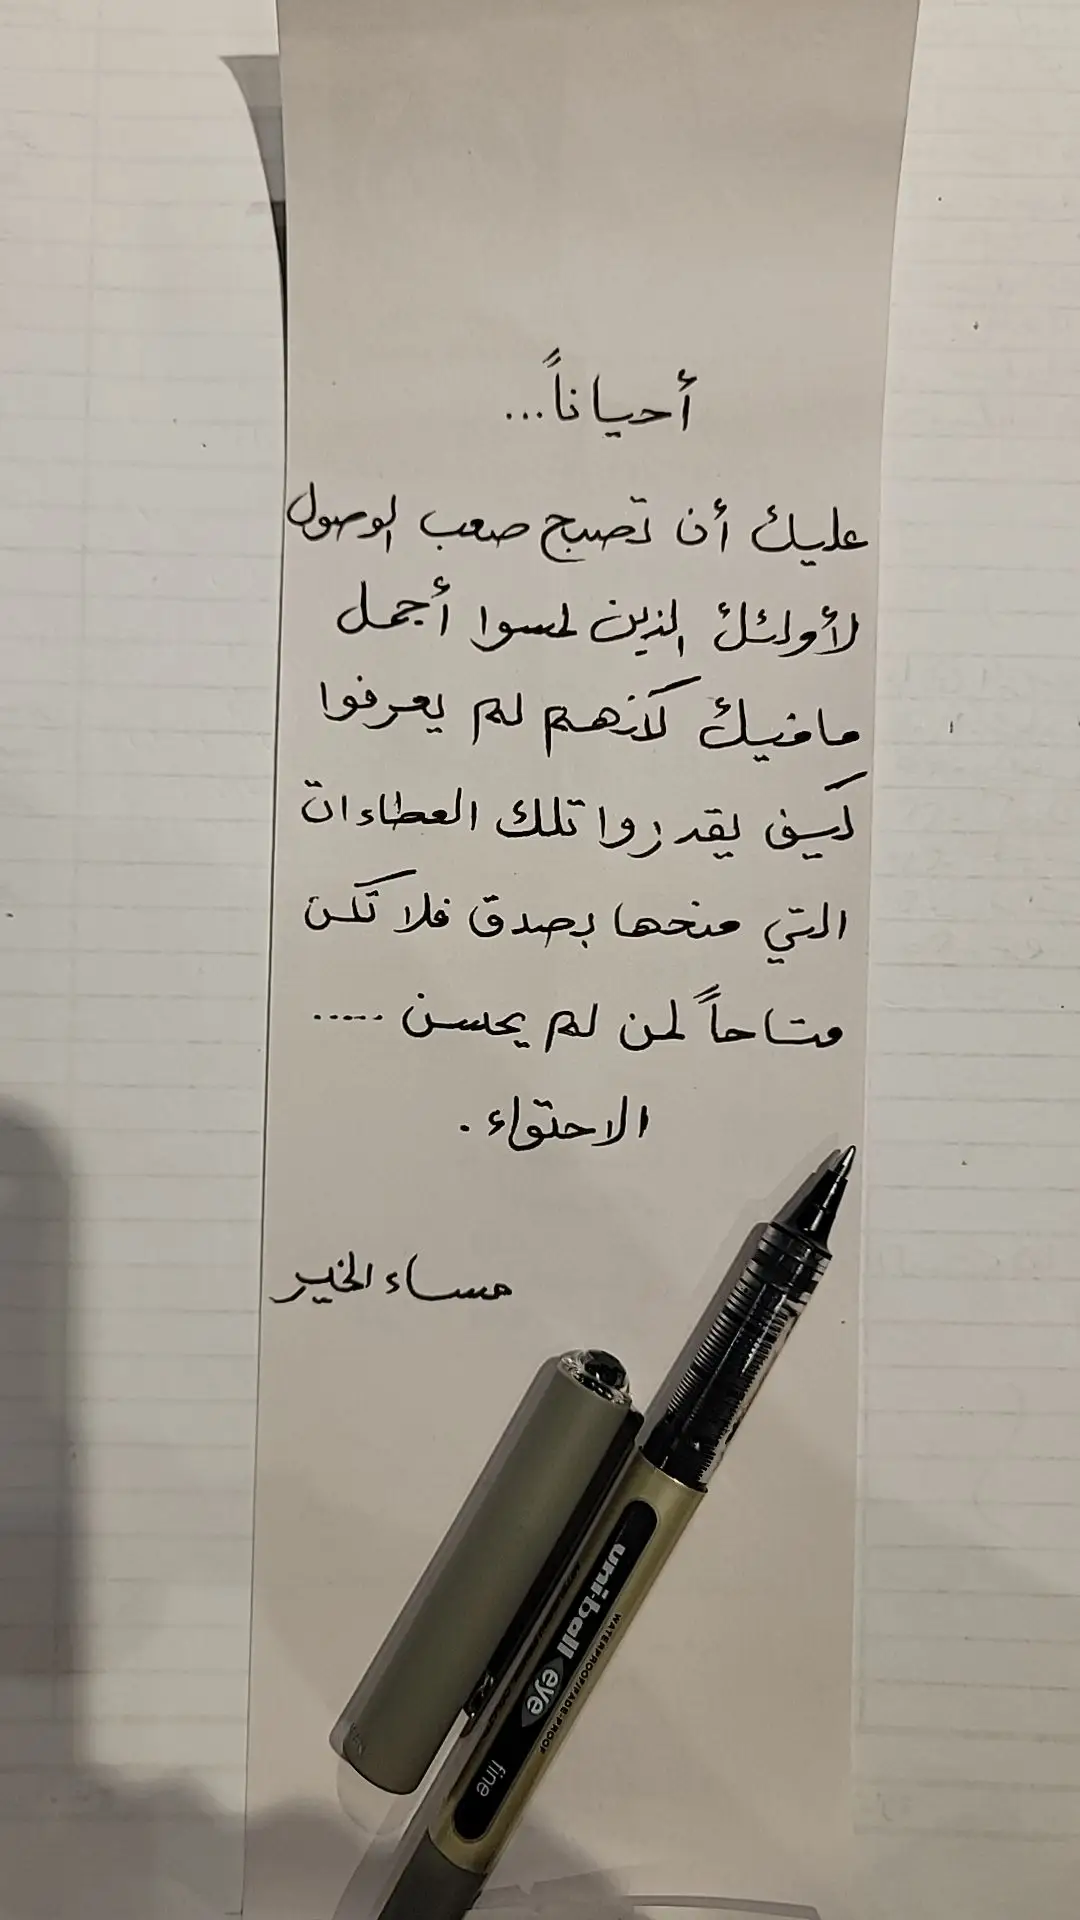 أحياناً...
عليك أن تصبح صعب الوصول
لأولئك الذين لمسوا أجمل
مافيك كأنهم لم يعرفوا
كيف يقدروا تلك العطاءات
التي منحها بصدق فلا تكن
متاحاً لمن لم يحسن .....
الاحتواء .
مساء الخير
uni-ball eye
WATERPROOF/FADE-PROOF
fine